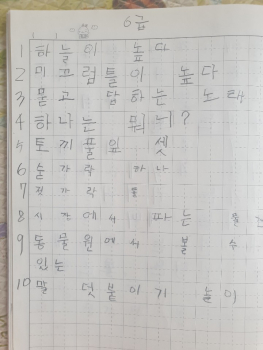 6급
1 하늘이 높다
2 미끄럼틀이 높다
3 묻고 답하는 노래
4 하나는 뭐니?
5 토끼풀잎 셋
6 숟가락 하나
7 젓가락 둘
8 시장에서 파는 물건
9 동물원에서 볼 수
있는
10 말 덧붙이기 놀이